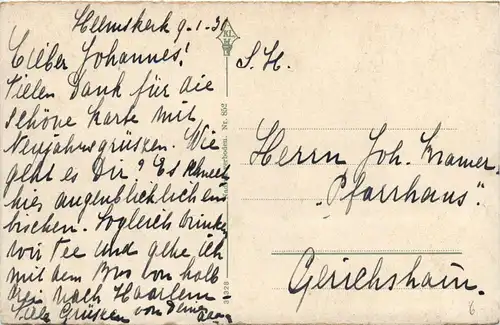 Heemskerk 9-1-3
Lieber Johannes!
Vielen Dank für die
schöne Karte mit
Neujahrsgrüssen. Wie
geht es Dir? Es schneet
hier augenblicklich ein
bischen. Sogleich trinken
wir Tee und gehe ich
mit dem Bus von halb
drei nach Haarlem.
Viele Grüssen von
S. H.
Herrn Joh. Kramer
„Pfarrhaus".
Gerichshain.
Nr. 852
6